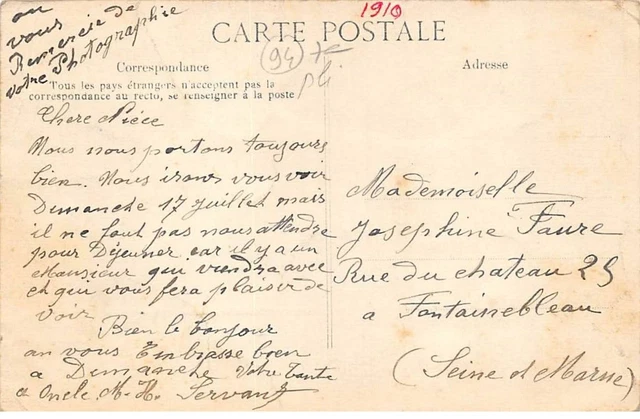 on
vous
Remercie de
votre Photographie
1910
CARTE POSTALE
94
7e
pli
Correspondance
Adresse
Tous les pays étrangers n'acceptent pas la
correspondance au recto, se renseigner à la poste
Chere Nièce
Nous nous portons toujours
bien. Nous irons vous voir
Dimanche 17 juillet mais
il ne faut pas nous attendre
pour Déjeuner car il y a un
Monsieur qui viendra avec
et qui vous fera plaisir de
voir
Bien le bonjour
an vous Embrasse bien
a Dimanche Votre Tante
a Oncle M. H. Servant
Mademoiselle
Josephine Faure
Rue du chateau 25
a Fontainebleau
(Seine et Marne)